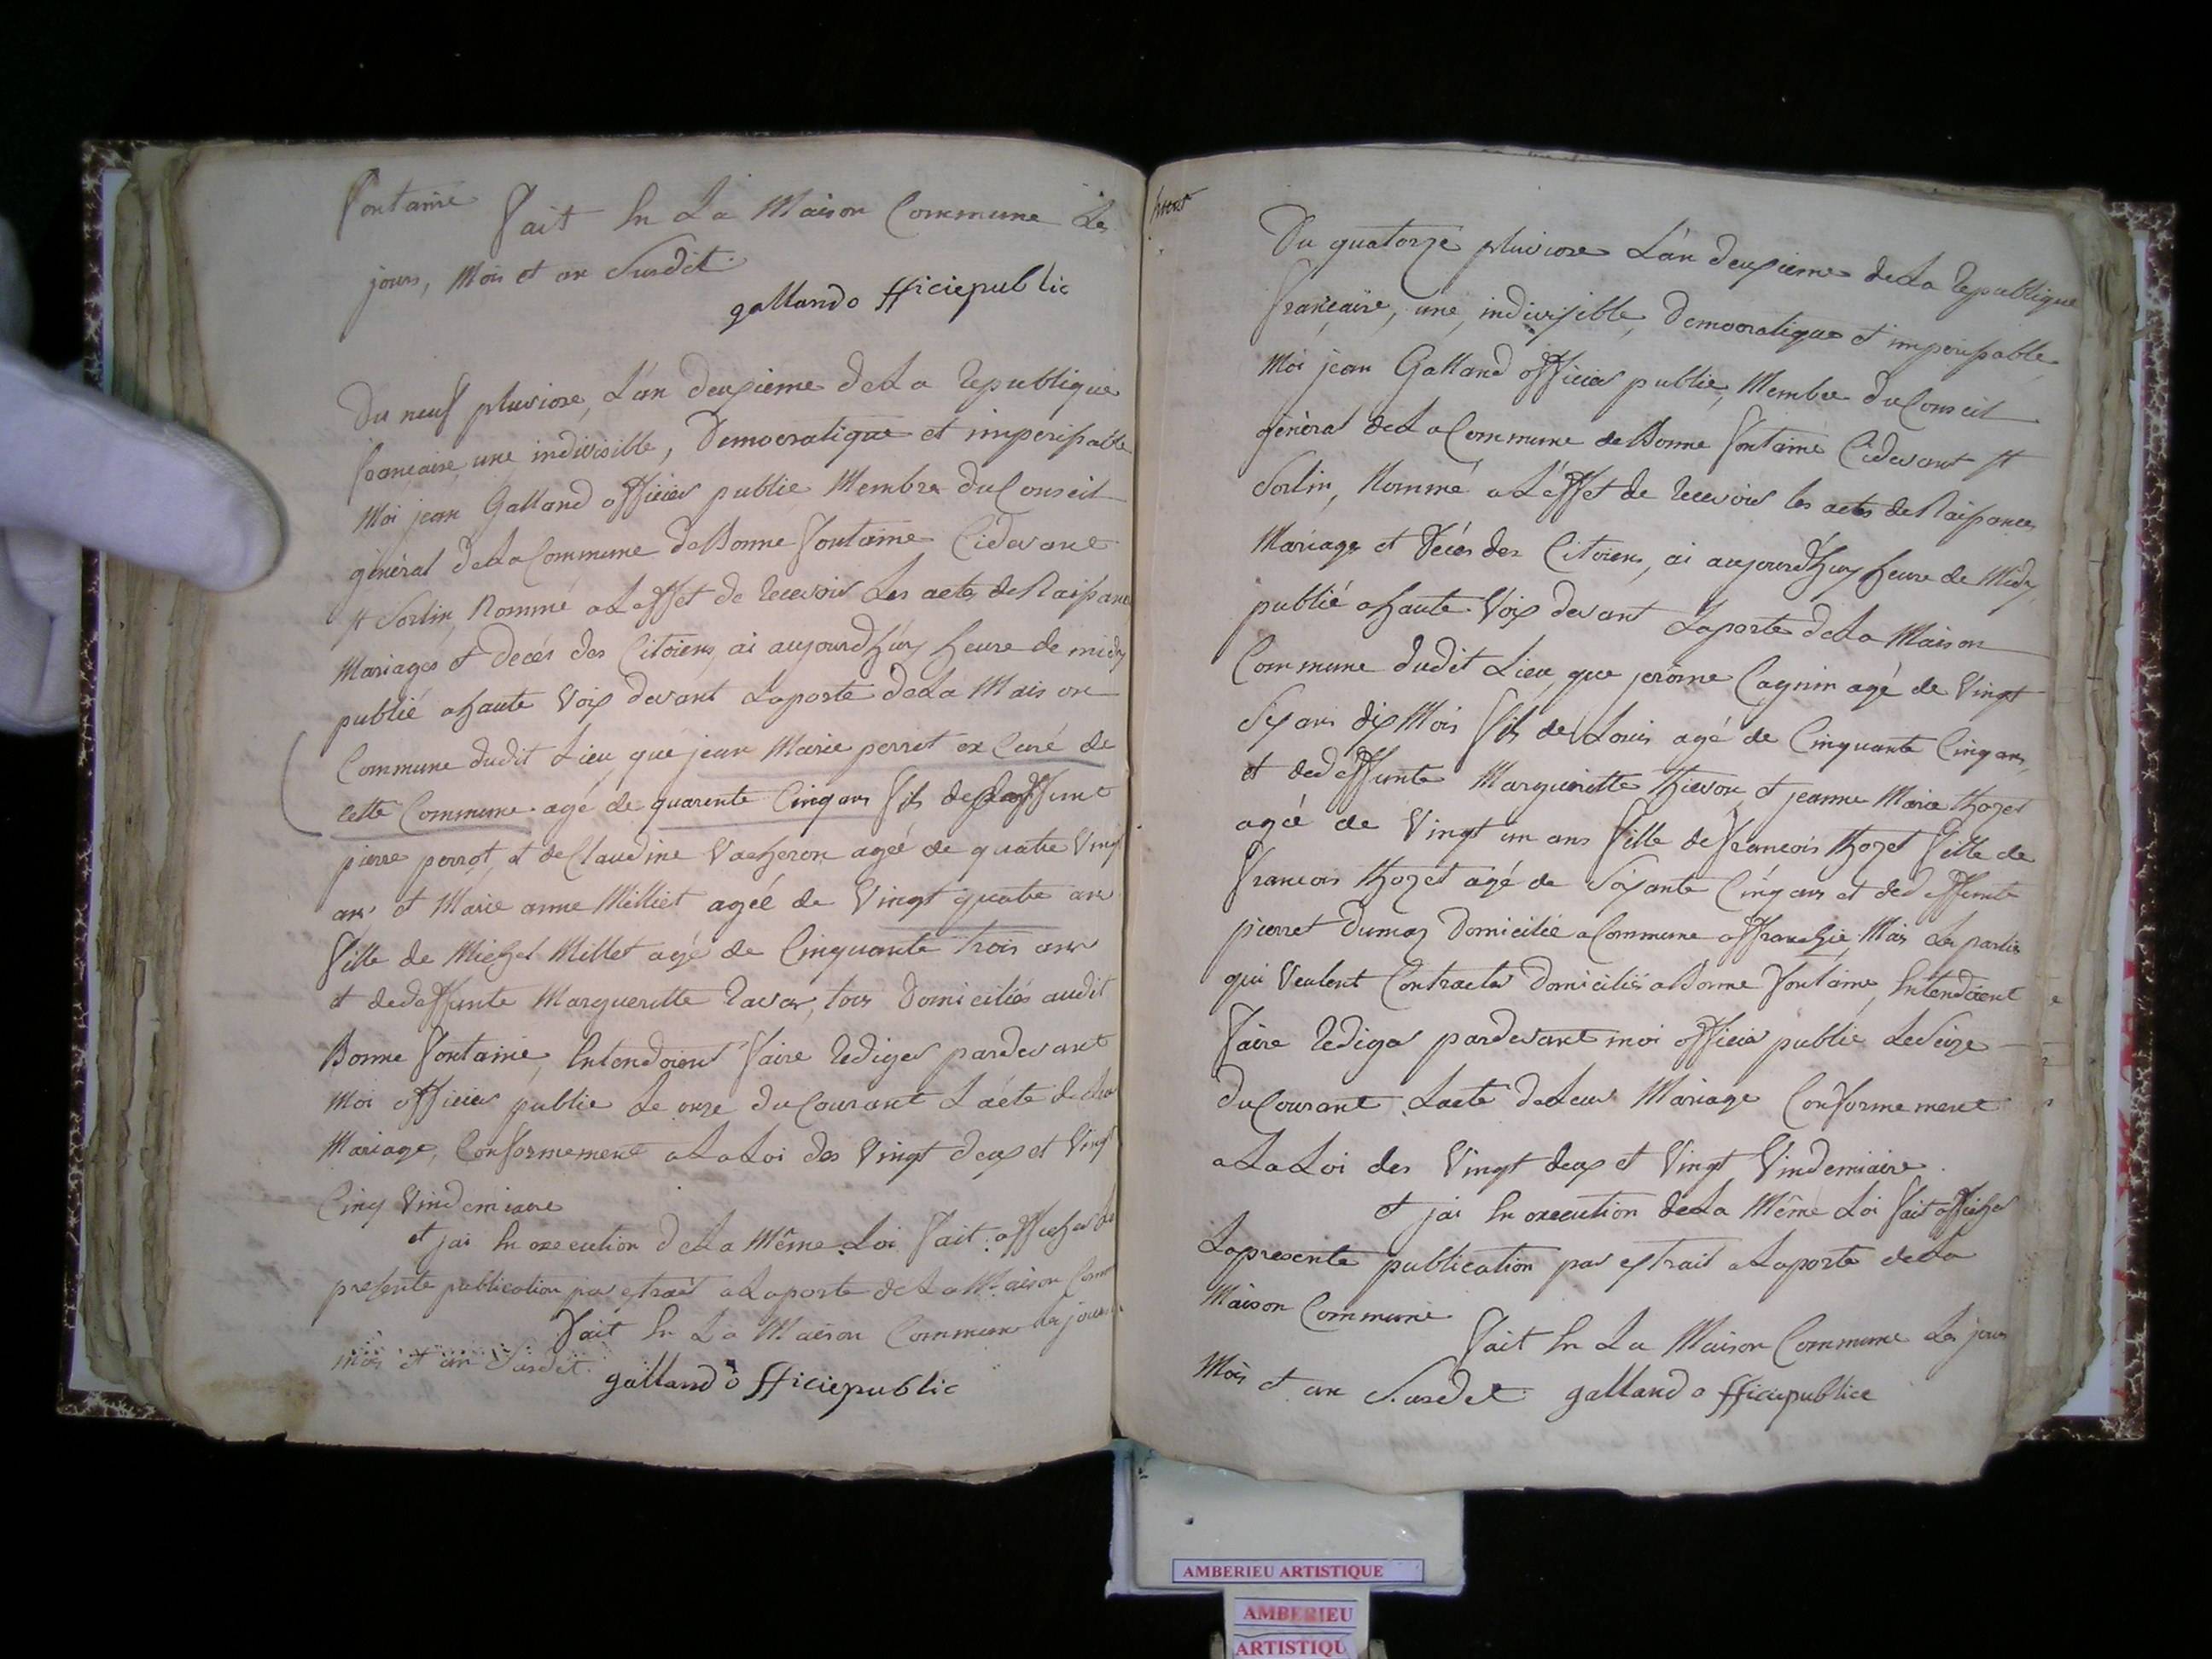 fontaine fait En La Maison Commune Les
jours, Mois et an Susdit.
galland officiepublic
Du neuf pluviose, L'an deuxieme de La Republique
francaise une indivisible, Democratique et imperissable
Moi jean Galland officier public Membre du Conseil
général de La Commune de Bonne fontaine Cidevant
st Sorlin, Nommé a L'effet de recevoir Les actes de Naissance
Mariages et decés des Citoiens, ai aujourd'huy heure de midy
publié a haute Voix devant La porte de La Maison
Commune dudit Lieu, que jean Marie perret ex Curé de
cette Commune agé de quarente Cinq ans fils de deffunt
pierre perrot, et de Claudine Vacheron agée de quatre Vingt
ans et Marie anne Milliet agée de Vingt quatre ans
fille de Michel Millet agé de Cinquante trois ans
et de deffunte Margueritte Ravar, tous Domiciliés audit
Bonne fontaine, Entendoient faire rediger pardevant
Moi officier public Le onze du Courant L'acte de Leur
Mariage, Conformement a La Loi des Vingt deux et Vingt
Cinq Vindemiaire
et jai En execution de La Même Loi fait afficher La
presente publication par extrait a La porte de La Maison Comm
fait En La Maison Commune Les jours
mois et an Susdit. galland officiepublic
Du quatorze pluviose L'an deuxieme de La Republique
francaise, une, indivisible, Democratique et imperissable
Moi jean Galland officier public, Membre du Conseil
général de La Commune de Bonne fontaine Cidevant st
Sorlin, Nommé a L'effet de recevoir les actes de Naissances
Mariages et Décés des Citoiens, ai aujourd'huy heure de Midy
publié a haute Voix devant La porte de La Maison
Commune dudit Lieu, que jerôme Cagnin agé de Vingt
Six ans dix Mois fils de Louis agé de Cinquante Cinq ans,
et de deffunte Margueritte Thievon, et jeanne Marie Thozet
agée de Vingt un ans fille de francois Thozet fille de
francois Thozet agé de Soixante Cinq ans et de deffunte
pierret Dumas Domicilié a Commune affranchie, Mais Les parties
qui Veulent Contracter Domiciliés a Bonne fontaine, Entendoient
faire rediger pardevant moi officier public Le Seize
du Courant L'acte de Leur Mariage Conformement
a La Loi des Vingt deux et Vingt Vindemiaire
et jai En execution de La Même Loi fait afficher
La presente publication par extrait a La porte de La
Maison Commune
fait En La Maison Commune Les jours
Mois et an Susdit galland officiepublice
AMBERIEU ARTISTIQUE
AMBERIEU
ARTISTIQU